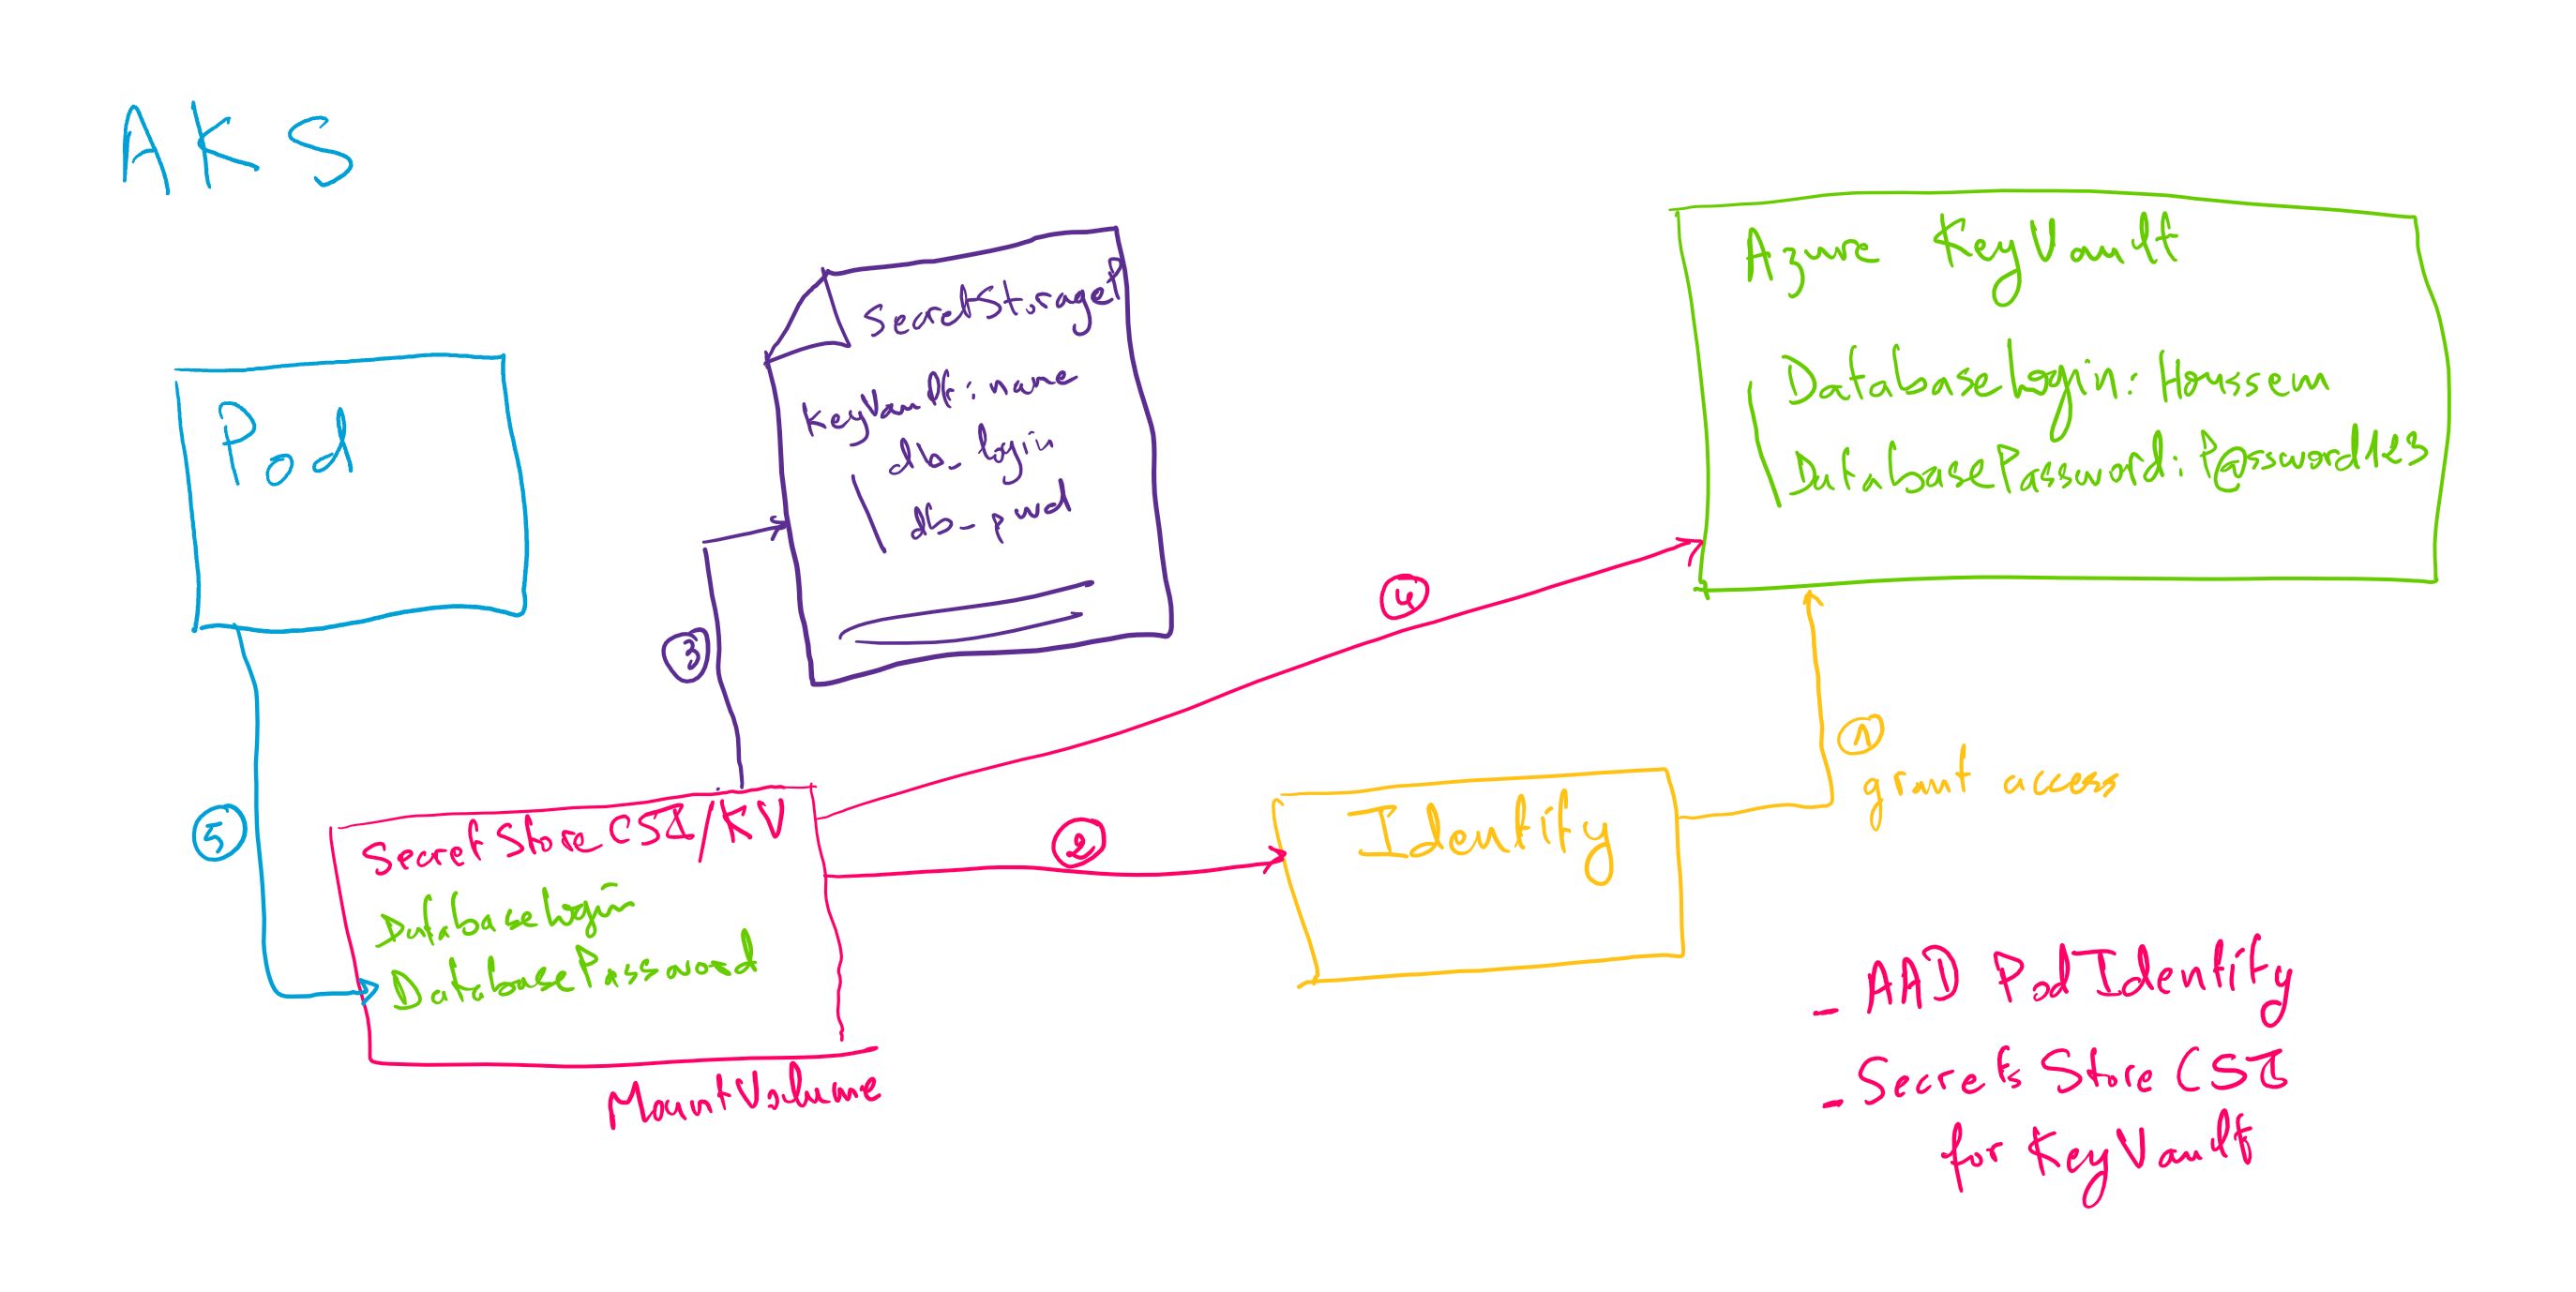 AKS
Pod
SecretStorageP
KeyVault: name
db_login
db_pwd
Azure KeyVault
DatabaseLogin: Houssem
DatabasePassword: P@ssword123
3
4
1
grant access
5
Secret Store CSI/KV
DatabaseLogin
DatabasePassword
MountVolume
2
Identity
- AAD PodIdentity
- Secrets Store CSI
for KeyVault